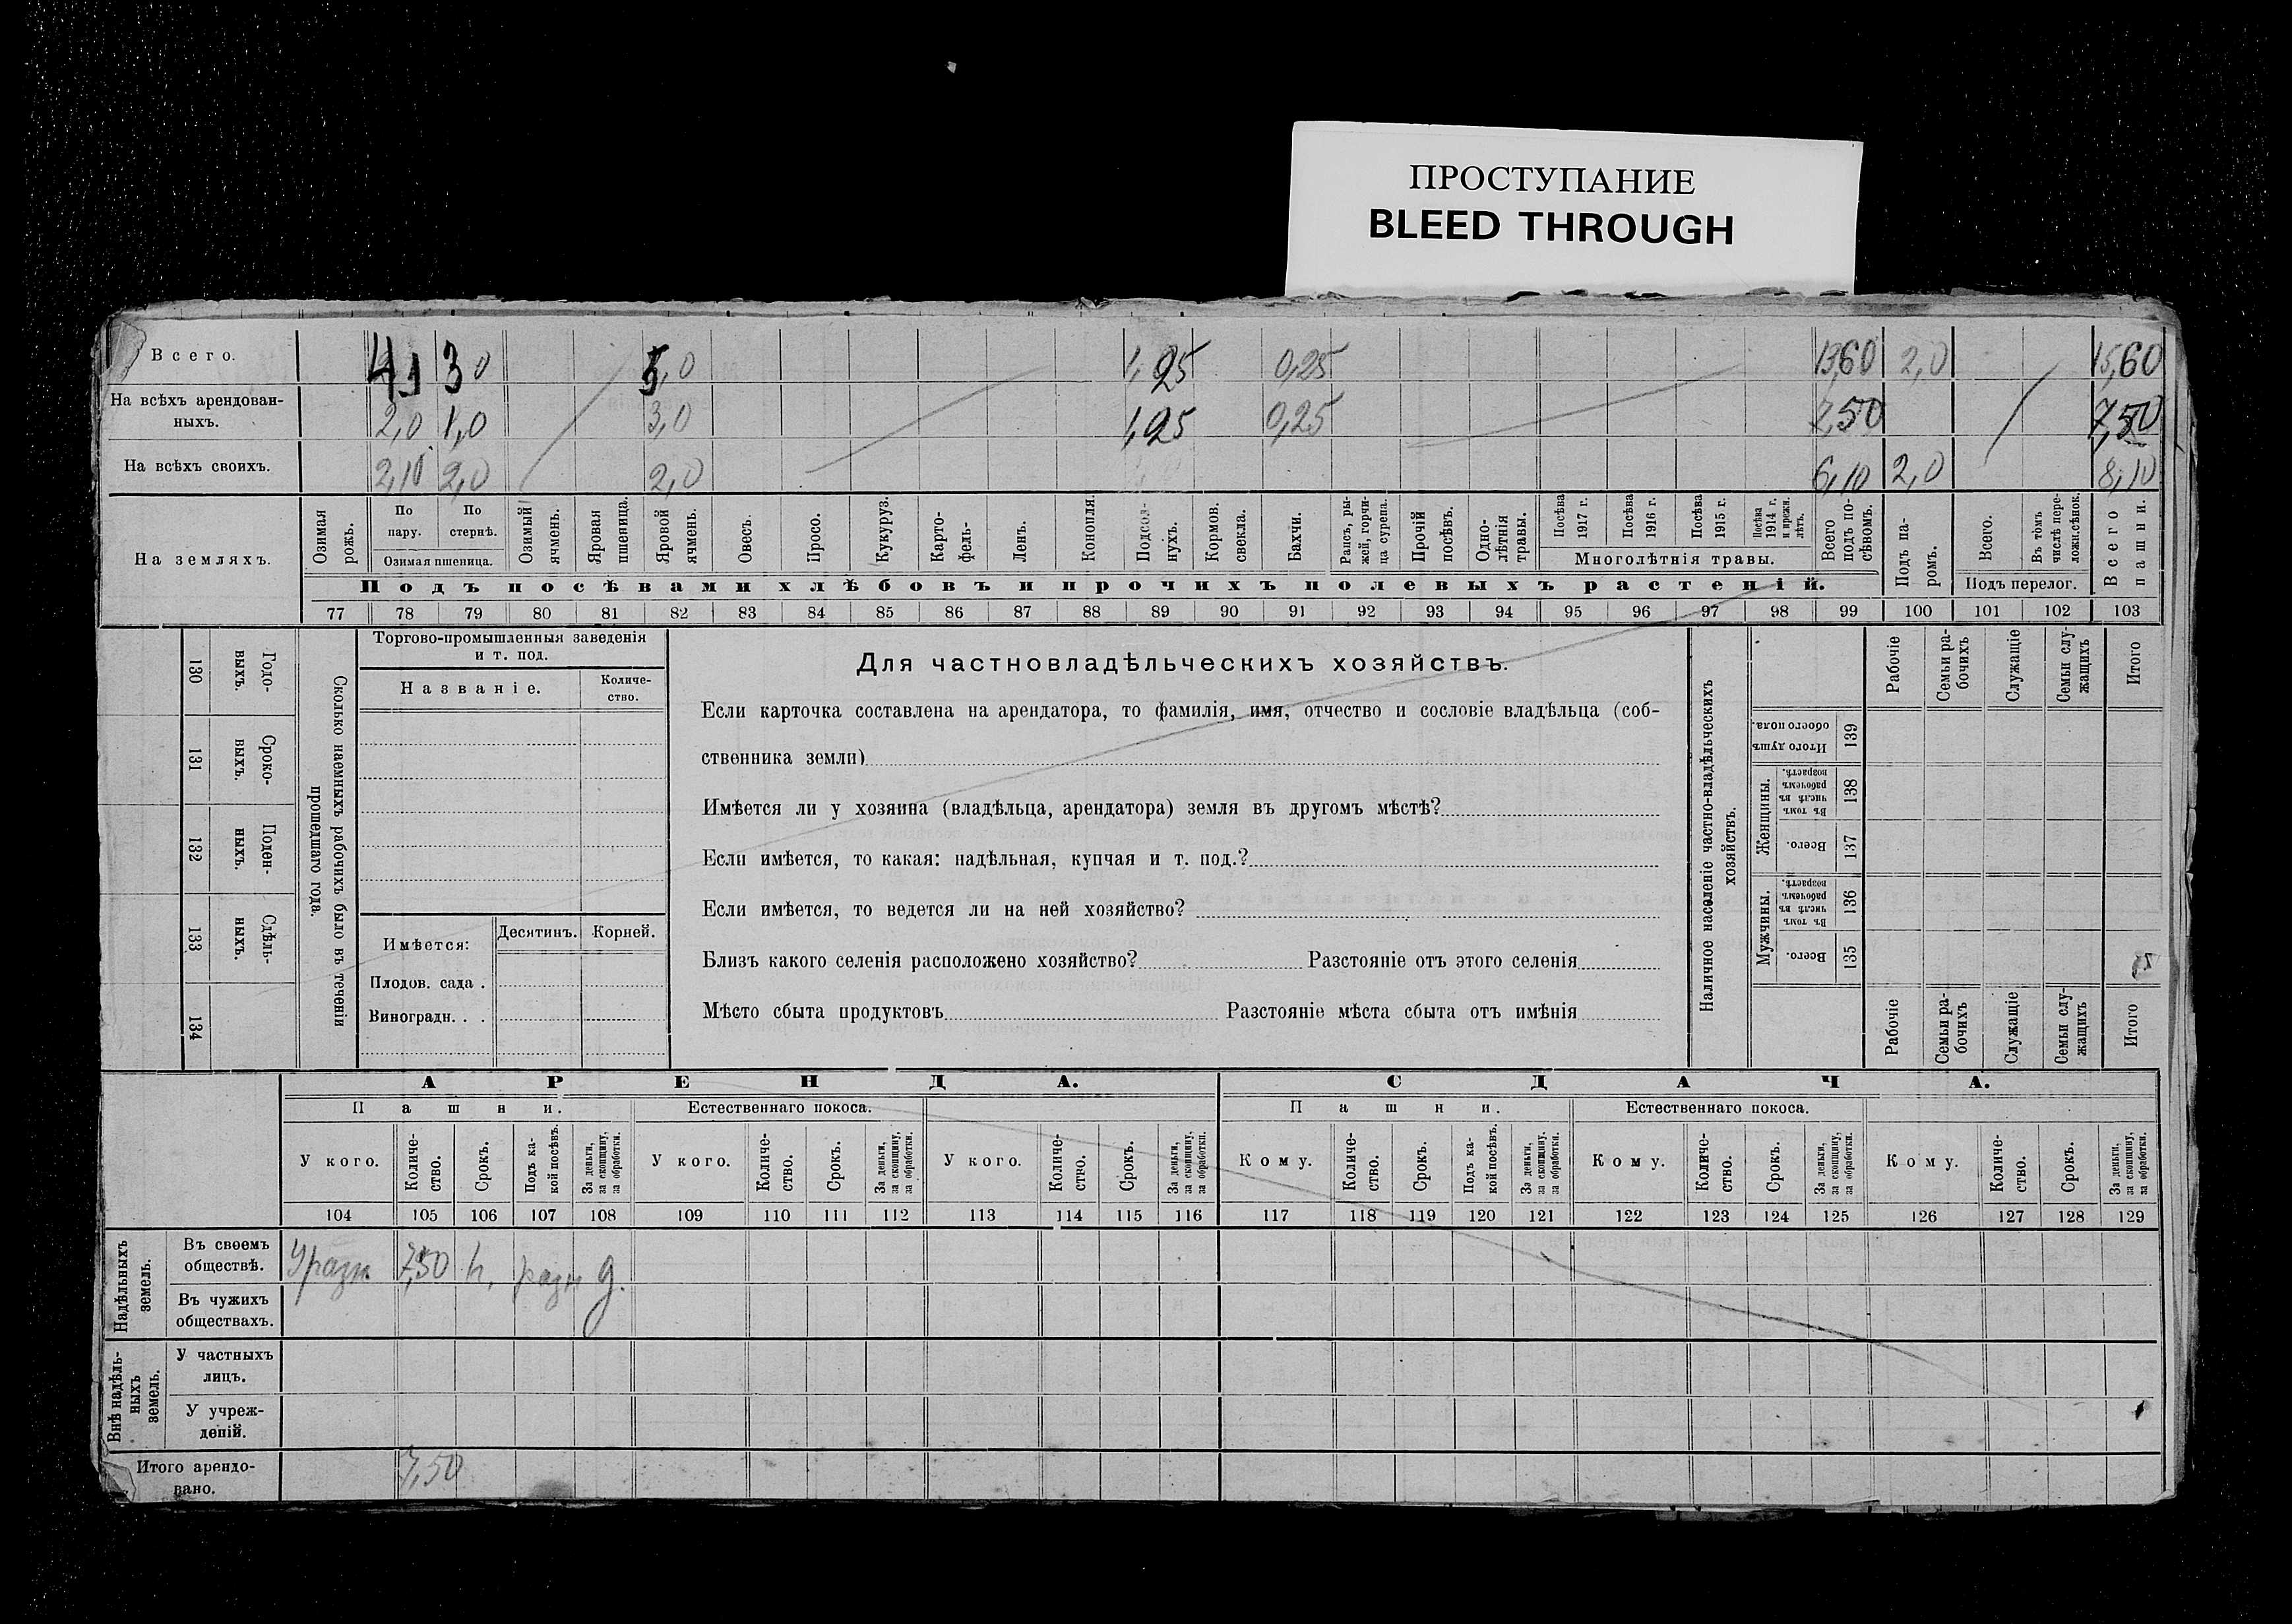 ПРОСТУПАНИЕ
BLEED THROUGH
Всего. 4,1 3,0 5,0 1,25 0,25 13,60 2,0 15,60
На всѣхъ арендован-
ныхъ. 2,0 1,0 3,0 1,25 0,25 7,50 7,50
На всѣхъ своихъ. 2,10 2,0 2,0 6,10 2,0 8,10
На земляхъ.
Озимая рожь.
По пару.
По стернѣ.
Озимая пшеница.
Озимый ячмень.
Яровая пшеница.
Яровой ячмень.
Овесъ.
Просо.
Кукуруз.
Карто-
фель-
Ленъ.
Конопля.
Подсол-
нухъ.
Кормов. свекла.
Бахчи.
Рапсъ, ры-
жей, горчи-
ца сурепа.
Прочій посѣвъ.
Одно-
лѣтнія травы.
Посѣва 1917 г.
Посѣва 1916 г.
Посѣва 1915 г.
Посѣва 1914 г. и прежн. лѣтъ.
Многолѣтнія травы.
Всего подъ по-
сѣвомъ.
Подъ па-
ромъ.
Всего.
Въ томъ числѣ пере-
ложн.сѣнок.
Подъ перелог.
Всего пашни.
Подъ посѣвами хлѣбовъ и прочихъ полевыхъ растеній.
77 78 79 80 81 82 83 84 85 86 87 88 89 90 91 92 93 94 95 96 97 98 99 100 101 102 103
130 Годо-
выхъ.
131 Сроко-
выхъ.
132 Поден-
ныхъ.
133 Сдѣль-
ныхъ.
134
Сколько наемныхъ рабочихъ было въ теченіи
прошедшаго года.
Торгово-промышленныя заведенія
и т. под.
Названіе.
Количе-
ство.
Имѣется:
Десятинъ.
Корней.
Плодов. сада .
Виноградн. . .
Для частновладѣльческихъ хозяйствъ.
Если карточка составлена на арендатора, то фамилія, имя, отчество и сословіе владѣльца (соб-
ственника земли)
Имѣется ли у хозяина (владѣльца, арендатора) земля въ другомъ мѣстѣ?
Если имѣется, то какая: надѣльная, купчая и т. под.?
Если имѣется, то ведется ли на ней хозяйство?
Близъ какого селенія расположено хозяйство? Разстояніе отъ этого селенія
Мѣсто сбыта продуктовъ Разстояніе мѣста сбыта отъ имѣнія
Наличное населеніе частно-владѣльческихъ
хозяйствъ.
Рабочіе
Семьи ра-
бочихъ
Служащіе
Семьи слу-
жащихъ
Итого
Итого душъ обоего пола. 139
Женщины.
Въ томъ числѣ въ рабочемъ возрастѣ. 138
Всего. 137
Мужчины.
Въ томъ числѣ въ рабочемъ возрастѣ. 136
Всего. 135
Рабочіе
Семьи ра-
бочихъ
Служащіе
Семьи слу-
жащихъ
Итого
АРЕНДА.
СДАЧА.
Пашни.
Естественнаго покоса.
Пашни.
Естественнаго покоса.
У кого.
Количе-
ство.
Срокъ.
Подъ ка-
кой посѣвъ.
За деньги,
за скопщину,
за обработки.
У кого.
Количе-
ство.
Срокъ.
За деньги,
за скопщину,
за обработки.
У кого.
Количе-
ство.
Срокъ.
За деньги,
за скопщину,
за обработки.
Кому.
Количе-
ство.
Срокъ.
Подъ ка-
кой посѣвъ.
За деньги,
за скопщину,
за обработки.
Кому.
Количе-
ство.
Срокъ.
За деньги,
за скопщину,
за обработки.
Кому.
Количе-
ство.
Срокъ.
За деньги,
за скопщину,
за обработки.
104 105 106 107 108 109 110 111 112 113 114 115 116 117 118 119 120 121 122 123 124 125 126 127 128 129
Надѣльныхъ
земель.
Въ своемъ
обществѣ. 7,50 разн д.
Въ чужихъ
обществахъ.
Внѣ надѣль-
ныхъ
земель.
У частныхъ
лицъ.
У учреж-
деній.
Итого арендо-
вано. 7,50